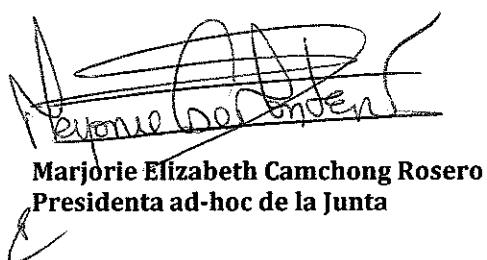 Marjorie Elizabeth Camchong Rosero
Presidenta ad-hoc de la Junta